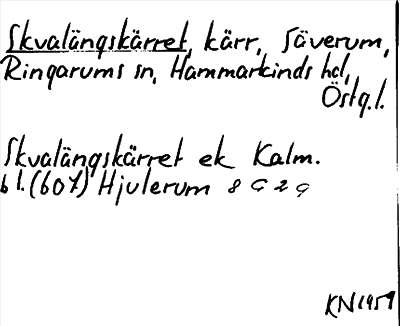 Skvalängskärret, kärr, Säverum,
Ringarums sn, Hammarkinds hd,
Östg.l.
Skvalängskärret ek Kalm.
bl. (607) Hjulerum 8 G 2 g
KN 1959